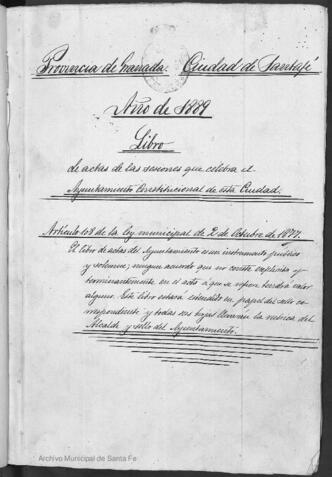 Provincia de Granada. Ciudad de Santafé
Año de 1889
Libro
de actas de las sesiones que celebra el
Ayuntamiento Constitucional de esta Ciudad.
Artículo 108 de la Ley municipal de 2 de Octubre de 1877.
El libro de actas del Ayuntamiento es un instrumento público
y solemne; ningun acuerdo que no conste explicita y
terminantemente en el acta á que se refiera tendrá valor
alguno. Este libro estará extendido en papel del sello co-
rrespondiente y todas sus hojas llevarán la rúbrica del
Alcalde y sello del Ayuntamiento.
Archivo Municipal de Santa Fe